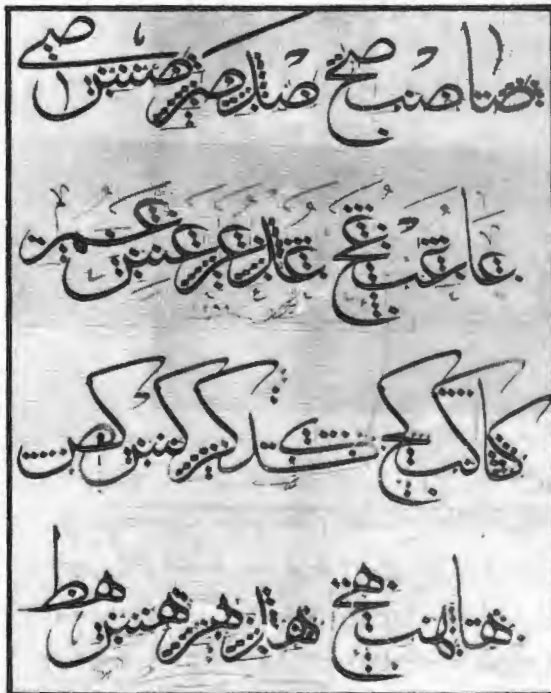 صا صب صج صد صر صس صى
عا عب عج عد عر عس عمر
كا كب كج كد كر كس كص
ها هب هج هد هر هس هط